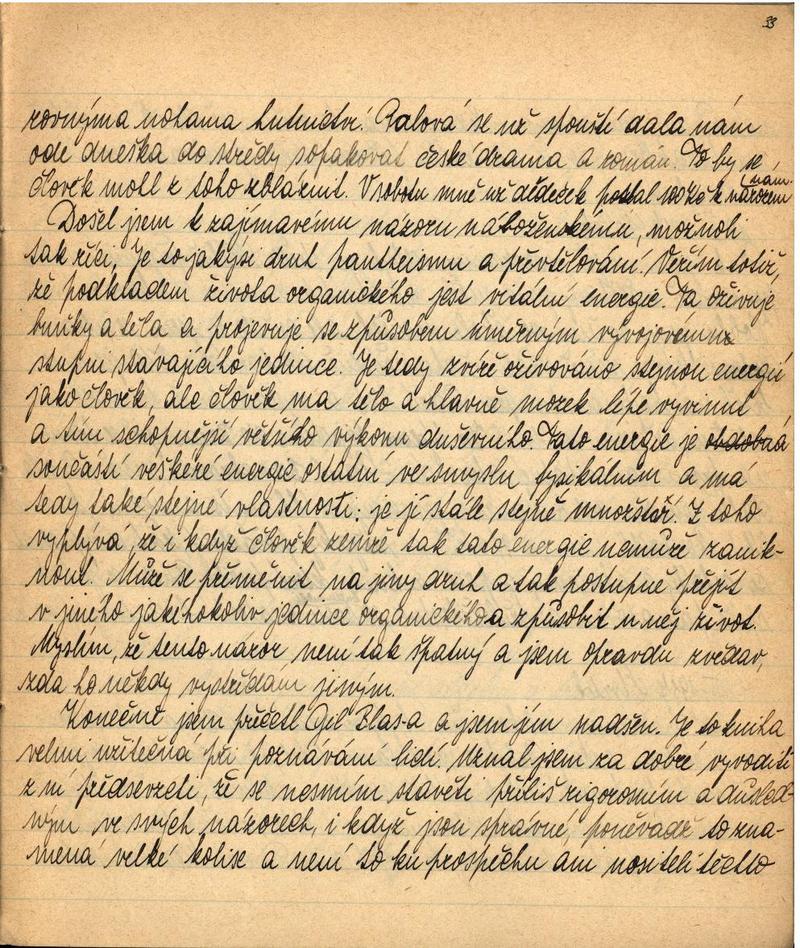 33
rovnýma nohama hutnictví. Palová se už spouští dala nám
ode dneška do středy sopakovat české drama a román. To by se
člověk mohl z toho zbláznit. V sobotu mně už dědeček poslal 100 Kč k narozeninám.
Došel jsem k zajímavému názoru náboženskému, možnoli
tak říci. Je to jakýsi druh pantheismu a převtělování. Věřím totiž,
že podkladem života organického jest vitální energie. Ta oživuje
buňky a těla a projevuje se způsobem úměrným vývojovému
stupni stavajícího jedince. Je tedy zvíře oživováno stejnou energií
jako člověk, ale člověk ma tělo a hlavně mozek lépe vyvinut
a tím schopnější většího výkonu duševního. Tato energie je
součástí veškeré energie ostatní ve smyslu fysikálním a má
tedy také stejné vlastnosti: je jí stále stejné množství. Z toho
vyplývá, že i když člověk zemře tak tato energie nemůže zanik-
nout. Může se přeměnit na jiný druh a tak postupně přejít
v jiného jakéhokoliv jedince organického a způsobit u něj život.
Myslím, že tento názor není tak špatný a jsem opravdu zvědav,
zda ho někdy vystřídam jiným.
Konečně jsem přečetl Gil Blas-a a jsem jím nadšen. Je to kniha
velmi užitečná při poznávání lidí. Uznal jsem za dobré vyvoditi
z ní předsevzetí, že se nesmím stavěti příliš rigorosním a důsled-
ným ve svých názorech, i když jsou správné, poněvadž to zna-
mená velké kolise a není to ku prospěchu ani nositeli těchto